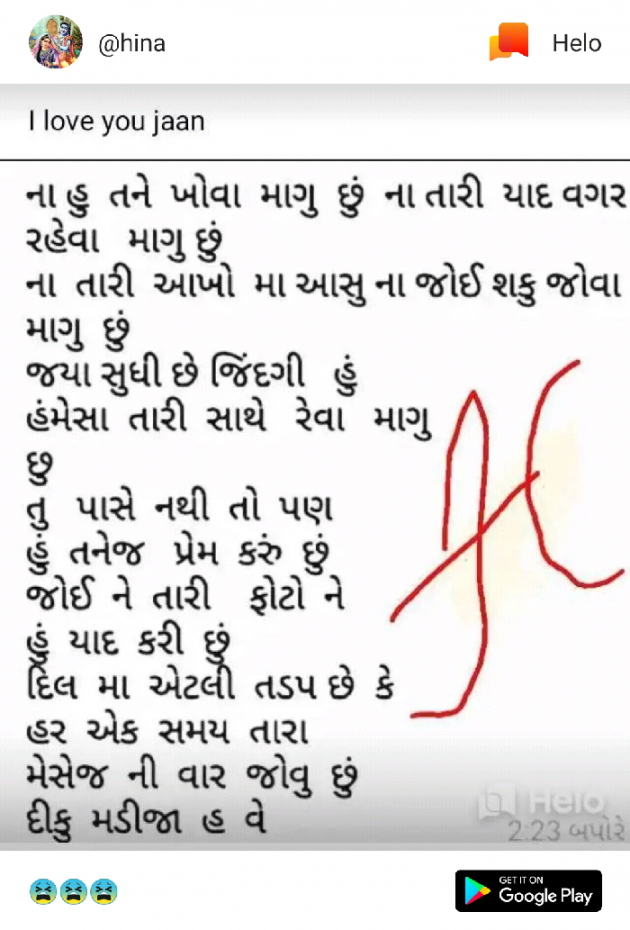 @hina
Helo
I love you jaan
ના હુ તને ખોવા માગુ છું ના તારી યાદ વગર
રહેવા માગુ છું
ના તારી આખો મા આસુ ના જોઈ શકુ જોવા
માગુ છું
જયા સુધી છે જિંદગી હું
હંમેસા તારી સાથે રેવા માગુ
છુ
તુ પાસે નથી તો પણ
હું તનેજ પ્રેમ કરું છું
જોઈ ને તારી ફોટો ને
હું યાદ કરી છું
દિલ મા એટલી તડપ છે કે
હર એક સમય તારા
મેસેજ ની વાર જોવુ છું
દીકુ મડીજા હ વે
Helo
2:23 બપોરે
GET IT ON
Google Play